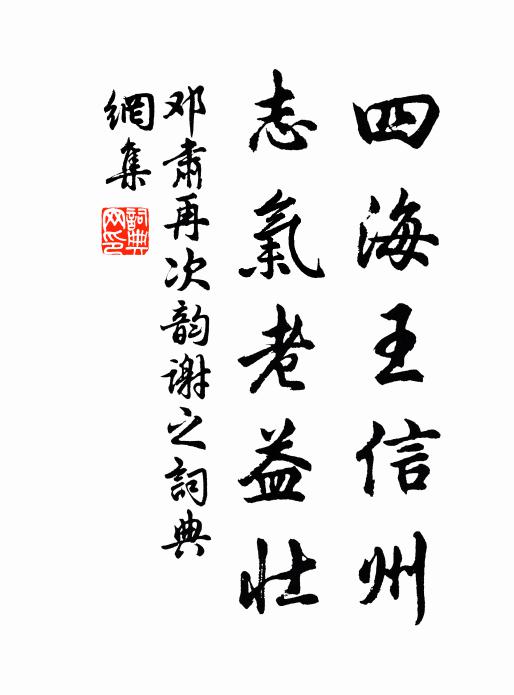 四海王信州
志氣老益壯
邓肅再次韵谢之詞典
網集
詞典
网印